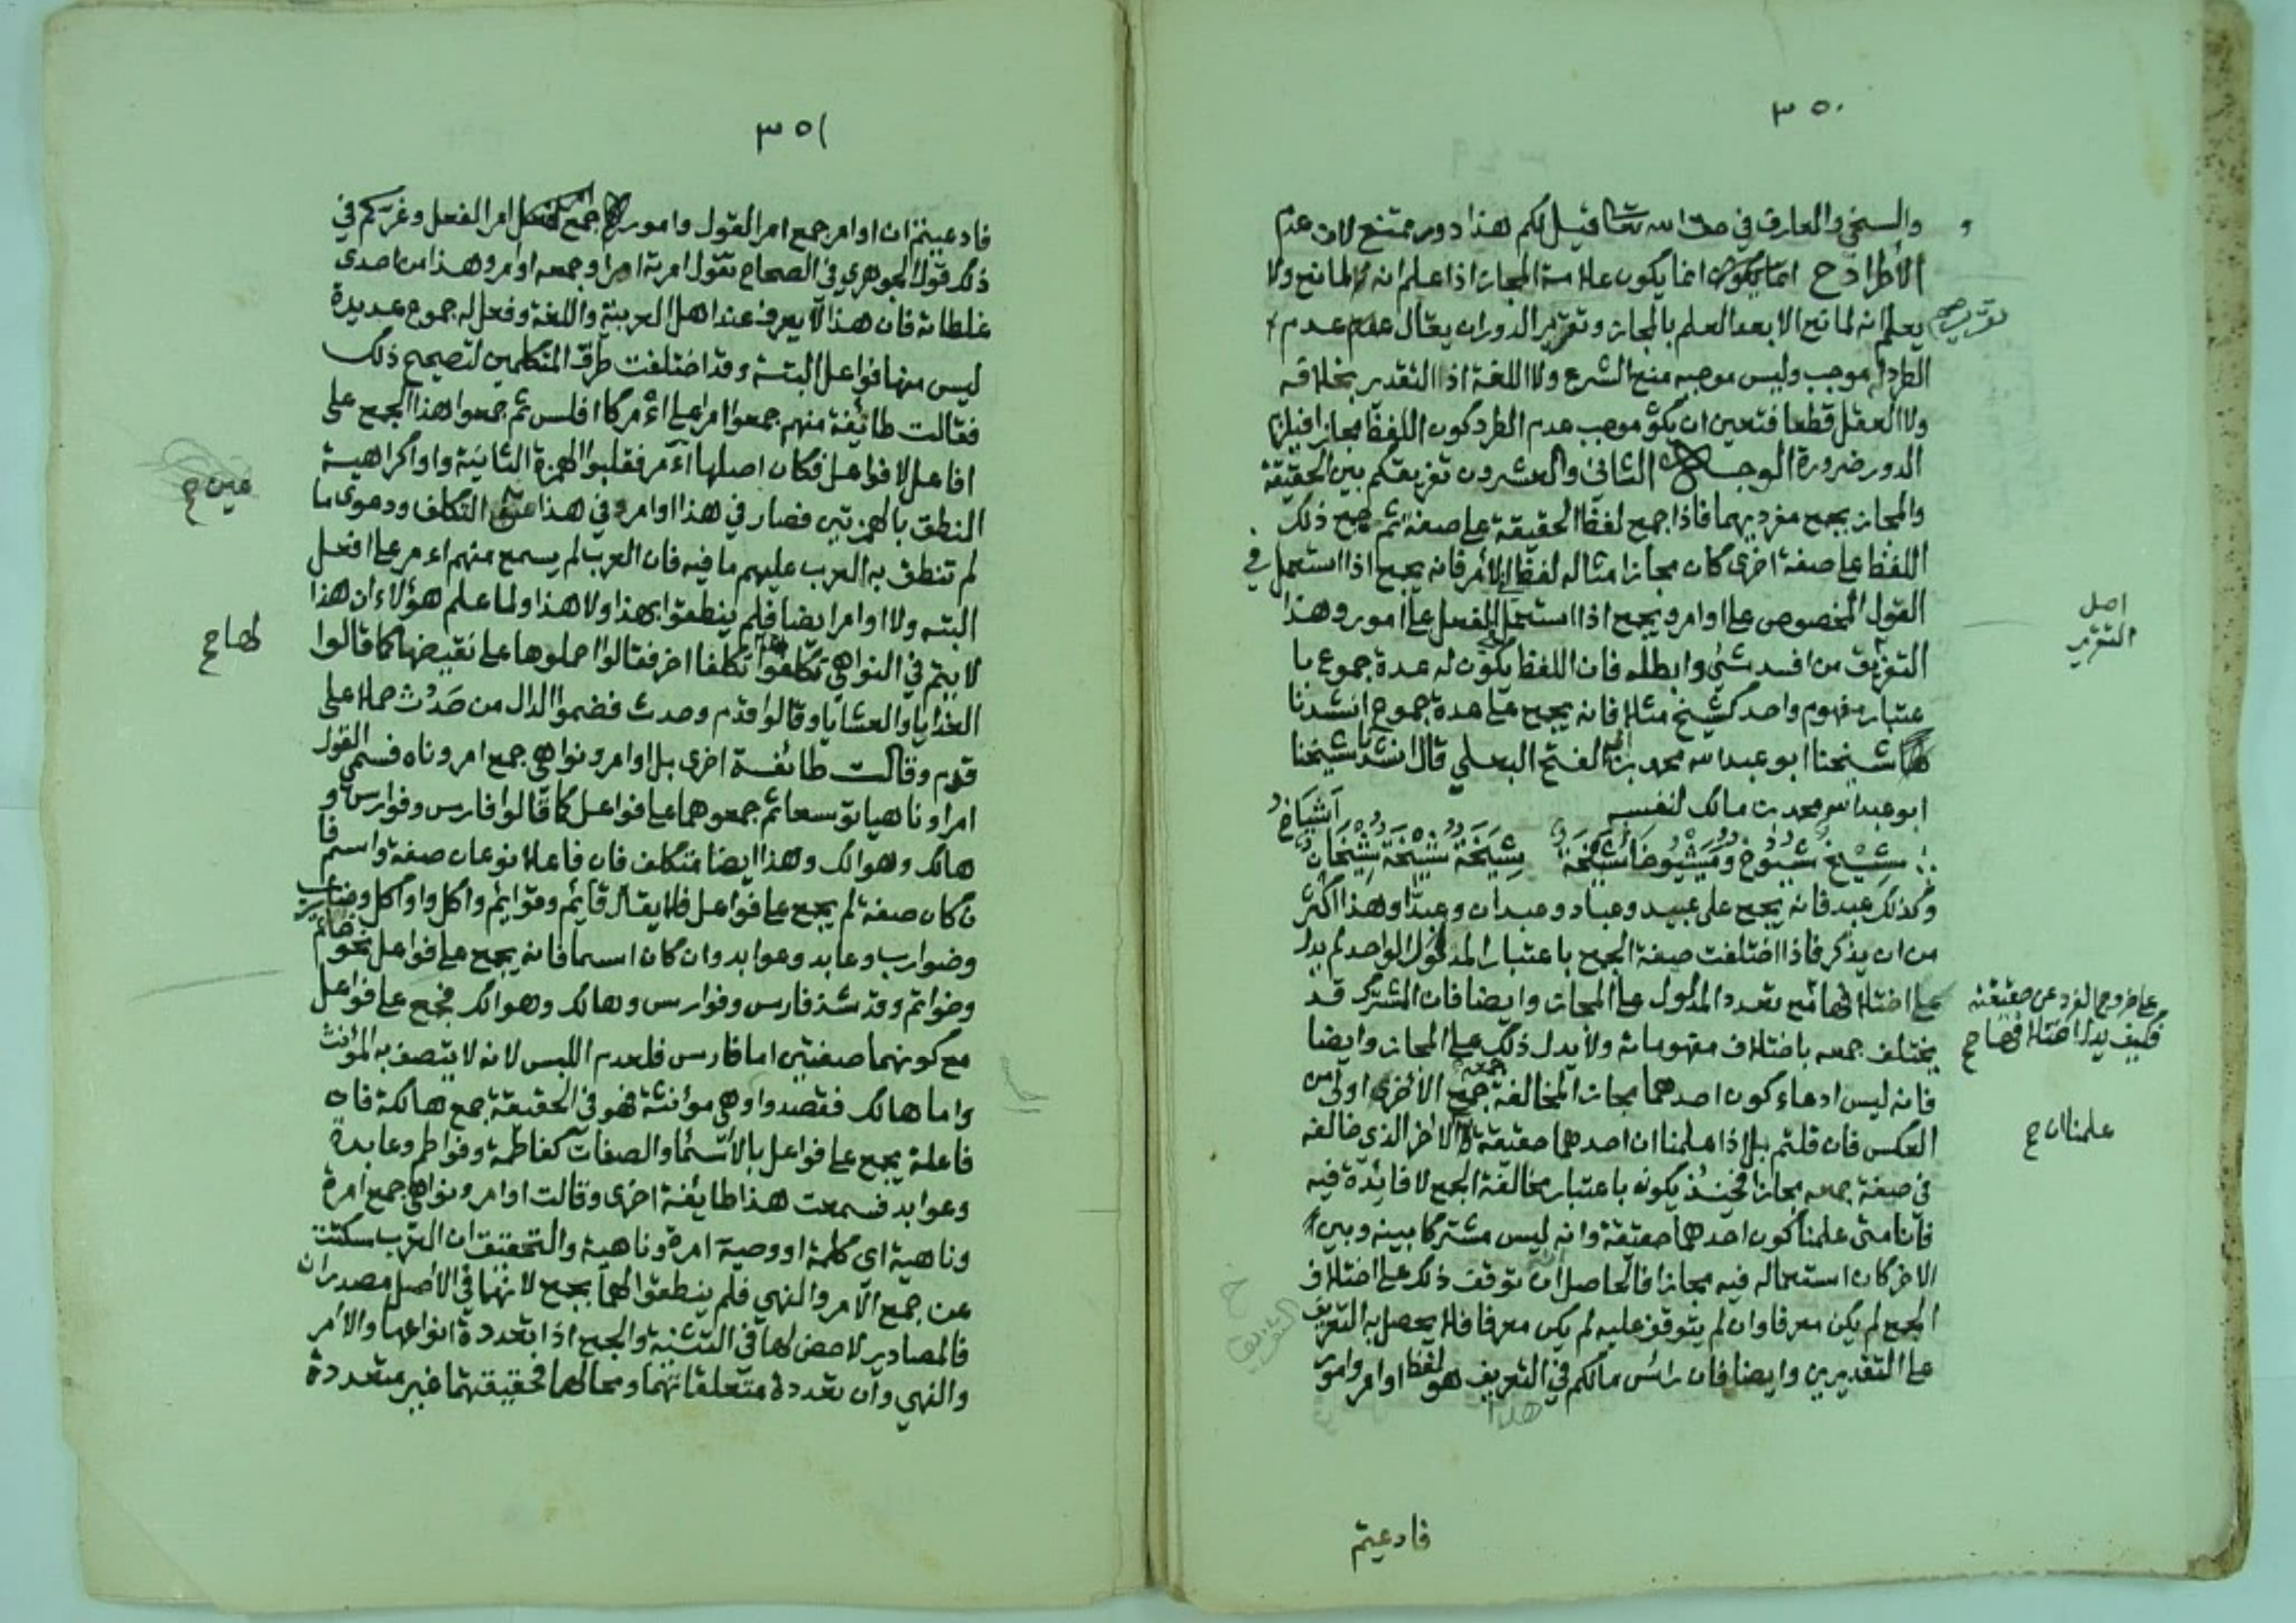 ٣٥٠
والسخي والعارف في حق الله تعالى فقيل لكم هذا دور ممتنع لان عدم
الأطراد ح انما يكون علامة المجاز اذا علم انه لا لمانع ولا
يعلم انه لمانع الا بعد العلم بالمجاز وتقرير الدور ان يقال عدم
الطرد له موجب وليس موجبه منع الشرع ولا اللغة اذ التقدير بخلافه
ولا العقل قطعا فتعين ان يكون موجب عدم الطرد كون اللفظ مجازا فيلزم
الدور ضرورة الوجه الثاني والعشرون تفريقكم بين الحقيقة
والمجاز بجمع مفرديهما فاذا جمع لفظ الحقيقة على صيغة ثم جمع ذلك
اللفظ على صيغة اخرى كان مجازا مثاله لفظ الأمر فانه يجمع اذا استعمل في
القول المخصوص على اوامر ويجمع اذا استعمل الفعل على امور وهذا
التفريق من افسد شئ وابطله فان اللفظ يكون له عدة جموع با
عتبار مفهوم واحد كشيخ مثلا فانه يجمع على عدة جموع انشدنا
شيخنا ابو عبد الله محمد بن ابي الفتح البعلي قال انشدنا شيخنا
ابو عبد الله محمد بن مالك لنفسه
شيخ شيوخ ومشيوخا مشيخة شيخة شيخة شيخان اشياخ
وكذلك عبد فانه يجمع على عبيد وعباد وعبدان وعبدا وهذا اكثر
من ان يذكر فاذا اختلفت صيغة الجمع باعتبار المدلول الواحد لم يدل
على اختلافها مع تعدد المدلول على المجاز وايضا فان المشترك قد
يختلف جمعه باختلاف مفهوماته ولا يدل ذلك على المجاز وايضا
فانه ليس ادعاء كون احدهما مجازا لمخالفة جمعه جمع الأخرى اولى من
العكس فان قلتم بل اذا علمنا ان احدهما حقيقة الاخر الذي خالفه
في صيغة جمعه مجاز فحينئذ يكونه باعتبار مخالفة الجمع لا فائدة فيه
فانا متى علمنا كون احدهما حقيقة وانه ليس مشتركا بينه وبين
الاخر كان استعماله فيه مجازا فالحاصل ان توقف ذلك على اختلاف
الجمع لم يكن معرفا وان لم يتوقف عليه لم يكن معرفا فلا يحصل به التعريف
على التقديرين وايضا فان رأس مالكم في التعريف هو لفظ اوامر وامور
فادعيتم
اصل
التقرير
على خروج المفرد عن حقيقته
فكيف يدل اختلافها ح
علمنا ان ح
٣٥١
فادعيتم ان اوامر جمع امر القول وامور جمع امر الفعل وغركم في
ذلك قول الجوهري في الصحاح تقول امرته امرا وجمعه اوامر وهذا من احدى
غلطاته فان هذا لا يعرف عند اهل العربية واللغة وفعل له جموع عديدة
ليس منها فواعل البتة وقد اختلفت طرق المتكلمين لتصحيح ذلك
فقالت طائفة منهم جمعوا امر على اأمر كا افلس ثم جمعوا هذا الجمع على
افاعل لا فواعل فكان اصلها أآمر فقلبوا الهمزة الثانية واوا كراهية
النطق بالهمزتين فصار في هذا اوامر وفي هذا من التكلف ودعوى ما
لم تنطق به العرب عليهم ما فيه فان العرب لم يسمع منهم اءمر على افعل
البته ولا اوامر ايضا فلم ينطقوا بهذا ولا هذا ولما علم هؤلاء ان هذا
لا يتم في النواهي تكلفوا تكلفا اخر فقالوا حملوها على نقيضها كما قالوا
الغدايا والعشايا وقالوا قدم وحدث فضموا الدال من حَدُث حملا على
قدم وقالت طائفة اخرى بل اوامر ونواهي جمع امر وناه فسمى القول
امرا وناهيا توسعا ثم جمعوهما على فواعل كما قالوا فارس وفوارس و
هالك وهوالك وهذا ايضا متكلف فان فاعلا نوعان صفة واسم فا
ن كان صفة لم يجمع على فواعل فلا يقال قايم وقوايم واكل واواكل وضارب
وضوارب وعابد وعوابد وان كان اسما فانه يجمع على فواعل نحو خاتم
وخواتم وقد شذ فارس وفوارس وهالك وهوالك فجمع على فواعل
مع كونهما صفتين اما فارس فلعدم اللبس لانه لا يتصف به المؤنث
واما هالك فقصدوا وهي مؤنثة فهو في الحقيقة جمع هالكة فان
فاعلة يجمع على فواعل بالأسماء والصفات كفاطمة وفواطم وعابدة
وعوابد فسمعت هذا طايفة اخرى وقالت اوامر ونواهي جمع امرة
وناهية اى كلمة او وصية امرة وناهية والتحقيق ان العرب سكتت
عن جمع الأمر والنهي فلم ينطقوا لهما بجمع لانهما في الأصل مصدران
فالمصادر لا حض لها في التثنية والجمع اذا تعددة انواعها والامر
والنهي وان تعددة متعلقاتهما ومحالهما فحقيقتهما غير متعددة
لها ح